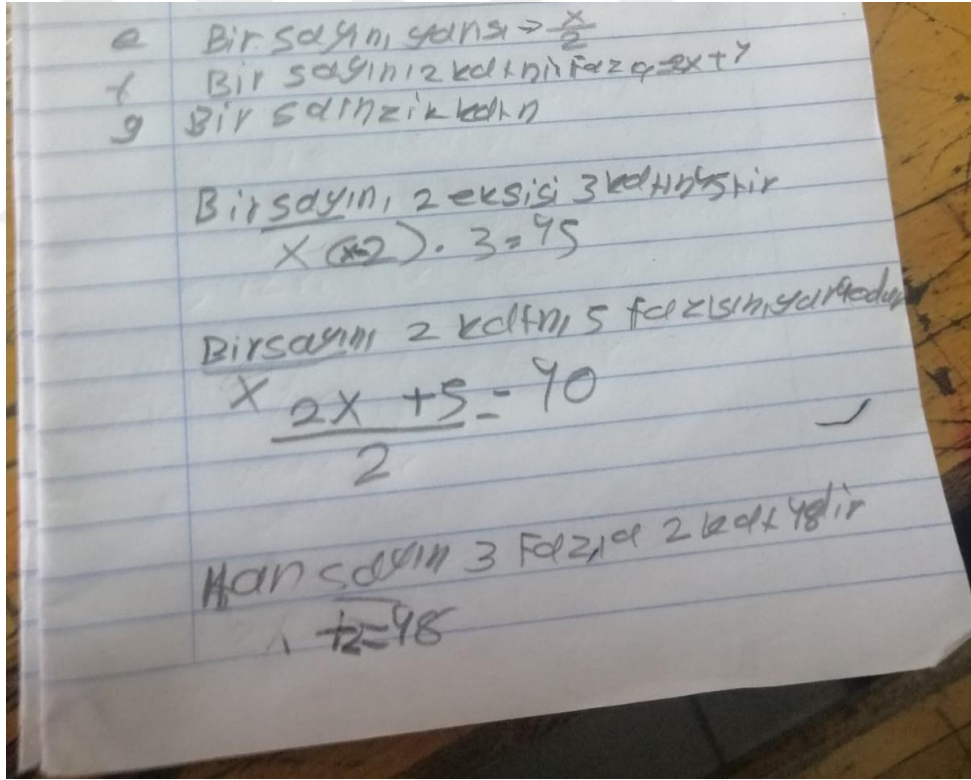 e Bir sayını yarısı → x/2
f Bir sayını 2 katını fazla = 2x + 7
g Bir
Bir sayını 2 eksisi 3 katı 45tir
x (x-2) . 3 = 45
Bir sayını 2 katını 5 fazlasını
x 2x + 5 = 40
2
Han sayın 3 fazla 2 kat 48dir
+2 = 48